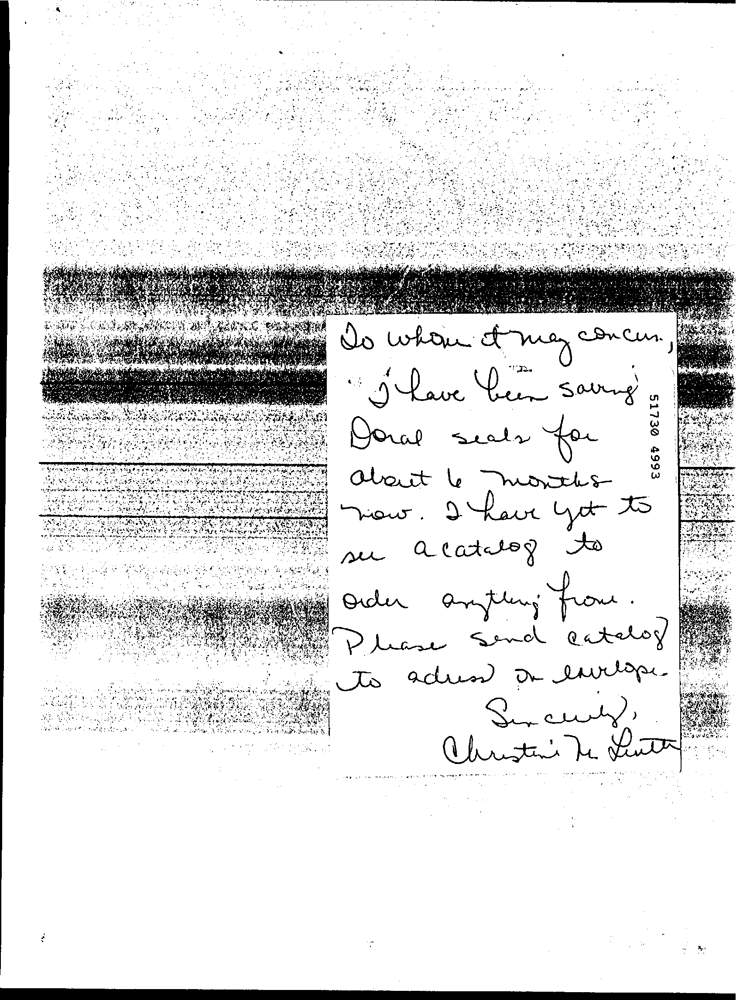 To whom it may concern,
I have been saving
Doral seals for
about 6 months
now. I have yet to
see a catalog to
order anything from.
Please send catalog
to adress on envelope.
Sincerely,
Christine
51730 4993